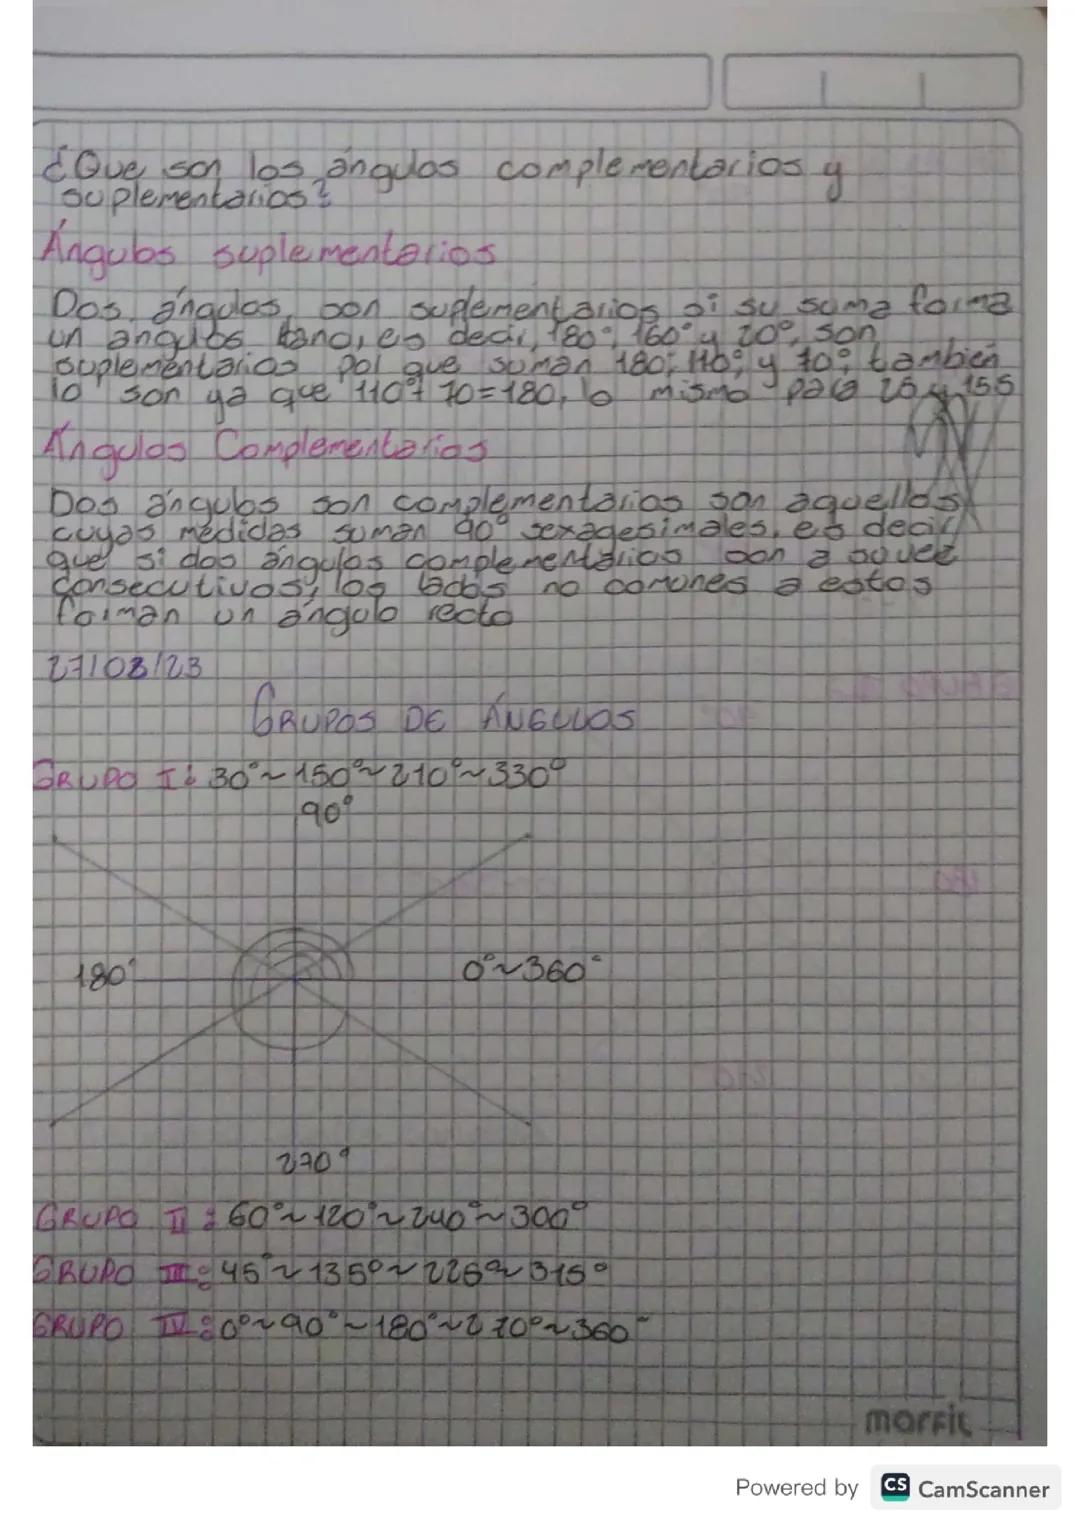 ¿Que son los ángulos complementarios y
suplementarios?
Ángulos suplementarios
Dos ángulos son suplementarios si su suma forma
un angulos llano, es decir, 180°, 160° y 20°, son
suplementarios por que suman 180; 110°, y 70°; tambien
lo son ya que 110°+ 70=180, lo mismo para 25 y 155
Ángulos Complementarios
Dos ángulos son complementarios son aquellos
cuyas medidas suman 90° sexagesimales, es decir
que si dos ángulos complementarios son a
consecutivos, los lados no comunes a estos
forman un ángulo recto
27/03/23
GRUPOS DE ÁNGULOS
GRUPO I: 30°~150°~210°~330°
90°
180°
0°~360°
270°
GRUPO II: 60°~120°~240°~300°
GRUPO III: 45°~135°~225°~315°
GRUPO IV: 0°~90°~180°~270°~360°
marfil
Powered by CS CamScanner